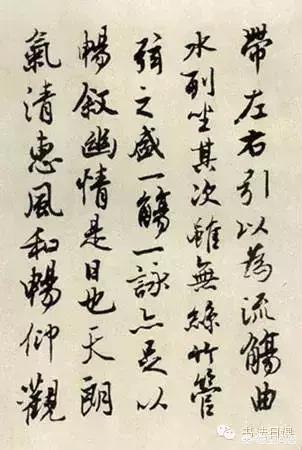 帶左右引以為流觴曲
水列坐其次雖無絲竹管
弦之盛一觴一詠亦足以
暢敘幽情是日也天朗
氣清惠風和暢仰觀
书法日课